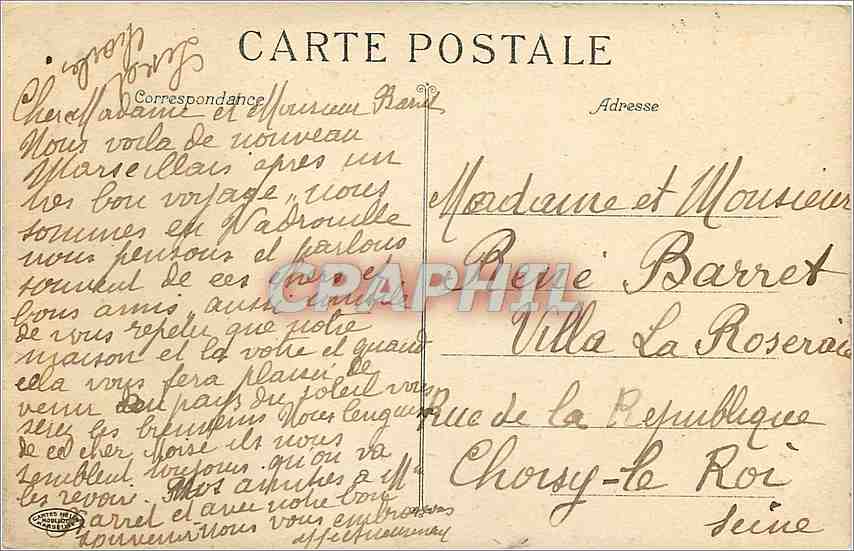 CARTE POSTALE
Correspondance
Adresse
Cher Madame et Monsieur Barret
Nous voila de nouveau
Marseillais apres un
tres bon voyage, nous
sommes en Vadrouille
nous pensons et parlons
souvent de ces chers et
bons amis, aussi inutile
de vous repeter que notre
maison et la votre et quand
cela vous fera plaisir de
venir au pays du soleil vous
serez les bienvenus Nous
de ce cher Moise ils nous
semblent toujours qu'on va
les revoir. Mes amities a Mr
Barret et avec notre bon
souvenir Nous vous embrassons
affectueusement
Charles
Madame et Monsieur
René Barret
Villa La Roseraie
Rue de la Republique
Choisy-le Roi
Seine
CPAPHIL
CARTES
MARSEILLE